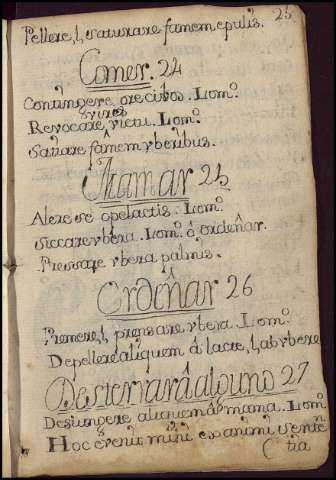 25
Pellere, l, saturare famem epulis.
Comer. 24
Contingere ore cibos. Lomo.
vires
Revocare, victu. Lomo.
Satiare famem vberibus.
Mamar 25
Alere se ope lactis. Lomo.
siccare vbera. Lomo. ó ordeñar.
Pressare vbera palmis.
Ordeñar 26
Premere, l, prensare vbera. Lomo.
Depellere aliquem á lacte, l, ab vbere
Desterrar á alguno 27
Desiungere aliquem á mama. Lomo.
Hoc evenit mihi ex animi senten
tia